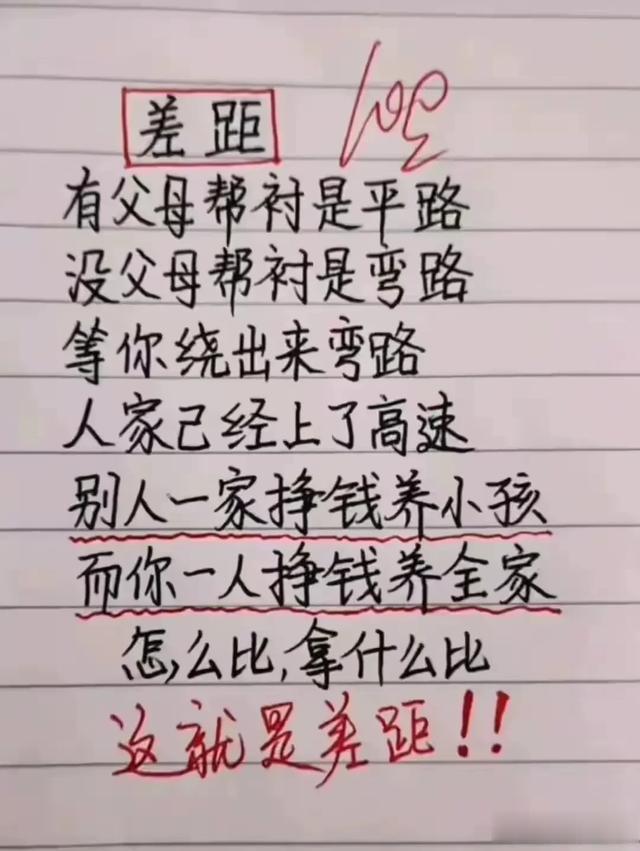 差距 100
有父母帮衬是平路
没父母帮衬是弯路
等你绕出来弯路
人家已经上了高速
别人一家挣钱养小孩
而你一人挣钱养全家
怎么比,拿什么比
这就是差距!!